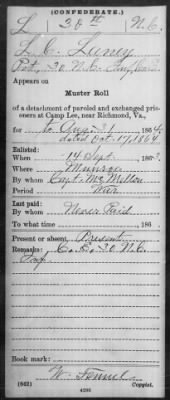 (CONFEDERATE.)
L 30th N.C.
L. C. Laney
Pvt, 30 N.C.
Appears on
Muster Roll
of a detachment of paroled and exchanged prisoners
at Camp Lee, near Richmond, Va.,
for to Aug. 31, 1864
dated Oct. 17, 1864
Enlisted:
When 14 Sept, 1863
Where Monroe
By whom Capt. McMillon
Period War
Last paid:
By whom Never Paid
To what time , 186
Present or absent, Present
Remarks: Co. E, 30 N.C.
Book mark:
W.
(862) Copyist.
4296